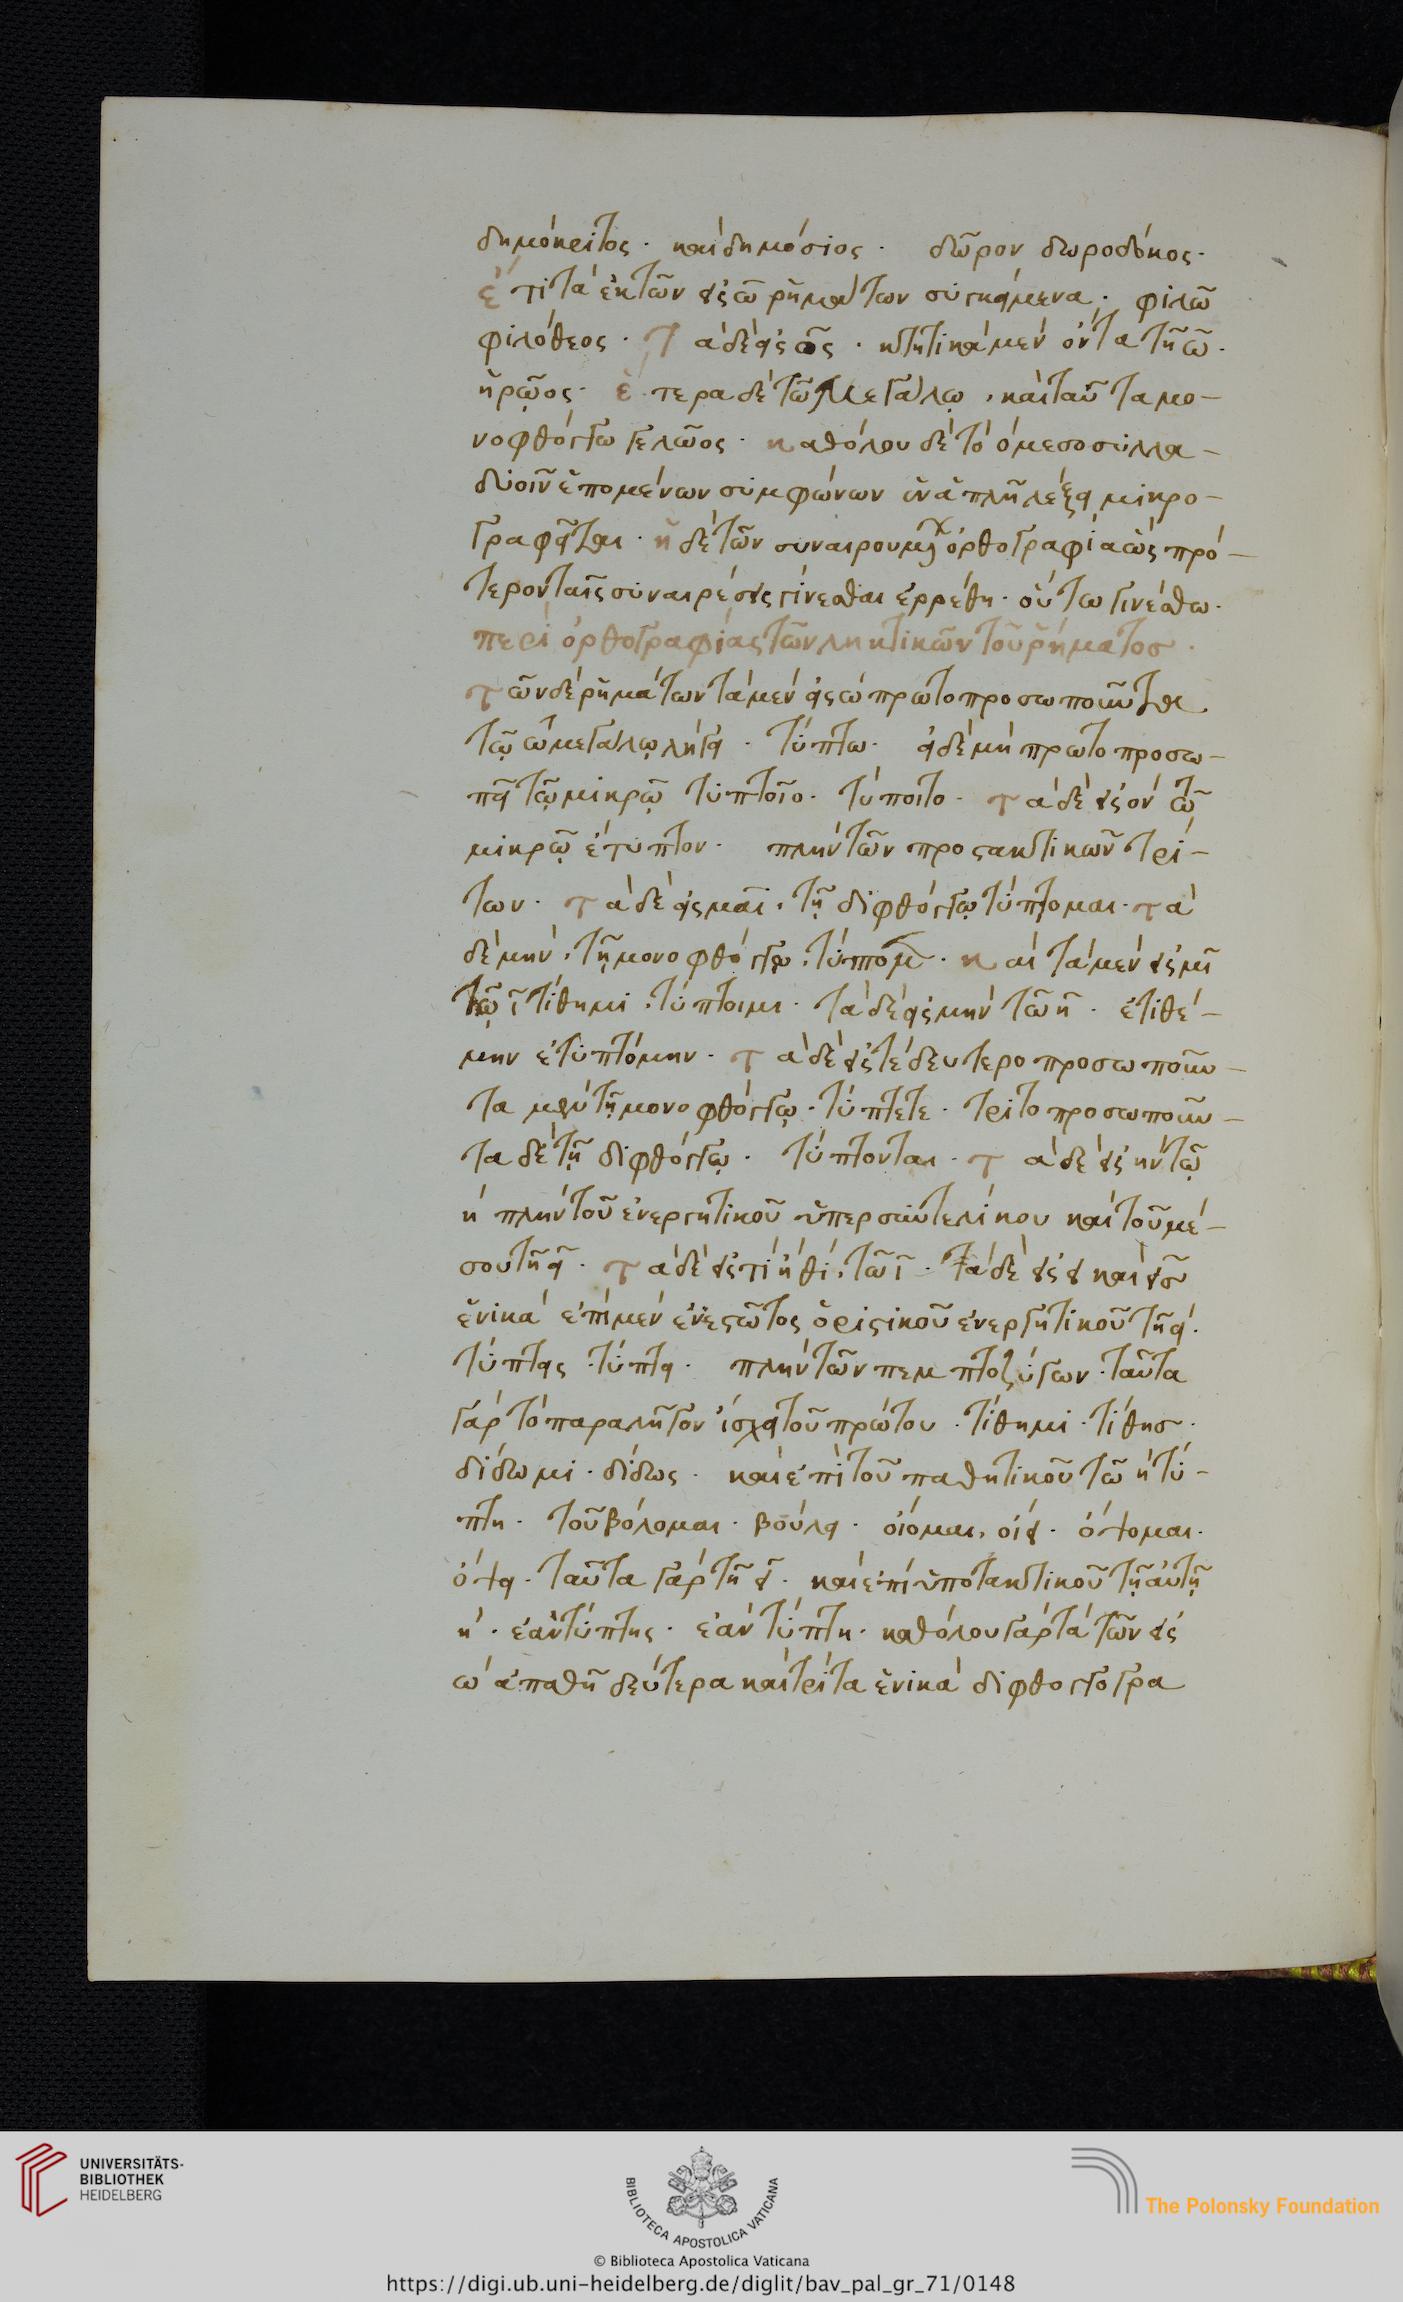 δημόκριτος· καὶ δημόσιος· δῶρον δωροδόκος·
ἔτι τὰ ἐκ τῶν εἰς ῶ ῥημάτων συγκείμενα· φιλῶ
φιλόθεος· τὰ δὲ εἰς ῶος· κτητικὰ μὲν ὄντα τῆ ω·
ἡρῶος· ἕτερα δὲ τῶ μεγάλῳ· καὶ ταῦτα μο-
νοφθόγγω γελῶος· καθόλου δὲ τὸ ὁ μεσοσύλλα-
δυοῖν ἑπομένων συμφώνων ἐν ἁπλῆ λέξει μικρο-
γραφεῖται· ἡ δὲ τῶν συναιρουμένων ὀρθογραφία ὡς πρό-
τερον ταῖς συναιρέσεις γίνεσθαι ἐρρέθη· οὕτω γινέσθω·
περὶ ὀρθογραφίας τῶν ληκτικῶν τοῦ ῥήματοσ·
τῶν δὲ ῥημάτων τὰ μὲν εἰς ω πρωτοπροσωποῦντα
τῷ ω μεγάλῳ λήγει· τύπτω· εἰ δὲ μὴ πρωτοπροσω-
πεῖ τῷ μικρῷ τύπτοιο· τύποιτο· τὰ δὲ εἰς ον τῶ
μικρῷ ἔτυπτον· πλὴν τῶν προστακτικῶν τρί-
των· τὰ δὲ εἰς μαι· τῇ διφθόγγῳ τύπτομαι· τὰ
δὲ μην· τῇ μονοφθόγγῳ· καὶ τὰ μὲν εἰς μι
τῷ ι τίθημι· τύπτοιμι· τὰ δὲ εἰς μην τῶ η· ἐτιθέ-
μην ἐτυπτόμην· τὰ δὲ εἰς τε δευτεροπροσωποῦν-
τα μὲν τῇ μονοφθόγγῳ· τύπτετε· τριτοπροσωποῦν-
τα δὲ τῇ διφθόγγῳ· τύπτονται· τὰ δὲ εἰς ην τῷ
η πλὴν τοῦ ἐνεργητικοῦ ὑπερσυντελίκου καὶ τοῦ μέ-
σου τῆ ει· τὰ δὲ εἰς τι ἢ θι· τῶ ι· τὰ δὲ εἰς ει καὶ εισ
ἑνικὰ ἐπὶ μὲν ἐνεστῶτος ὁριστικοῦ ἐνεργητικοῦ τῆ ει·
τύπτεις· τύπτει· πλὴν τῶν πεμπτοζύγων· ταῦτα
γὰρ τὸ παραλῆγον ἴσχει τοῦ πρώτου· τίθημι· τίθησ·
δίδωμι· δίδως· καὶ ἐπὶ τοῦ παθητικοῦ τῶ η τύ-
πτη· τοῦ βόλομαι· βούλει· οἴομαι· οἴει· ὄψομαι·
ὄψει· ταῦτα γὰρ τῆ ει· καὶ ἐπὶ ὑποτακτικοῦ τῇ αὐτῇ
η· ἐὰν τύπτης· ἐὰν τύπτη· καθόλου γὰρ τὰ τῶν εἰς
ω ἀπαθῆ δεύτερα καὶ τρίτα ἑνικὰ διφθογγογρα
UNIVERSITÄTS-
BIBLIOTHEK
HEIDELBERG
BIBLIOTECA APOSTOLICA VATICANA
The Polonsky Foundation
© Biblioteca Apostolica Vaticana
https://digi.ub.uni-heidelberg.de/diglit/bav_pal_gr_71/0148